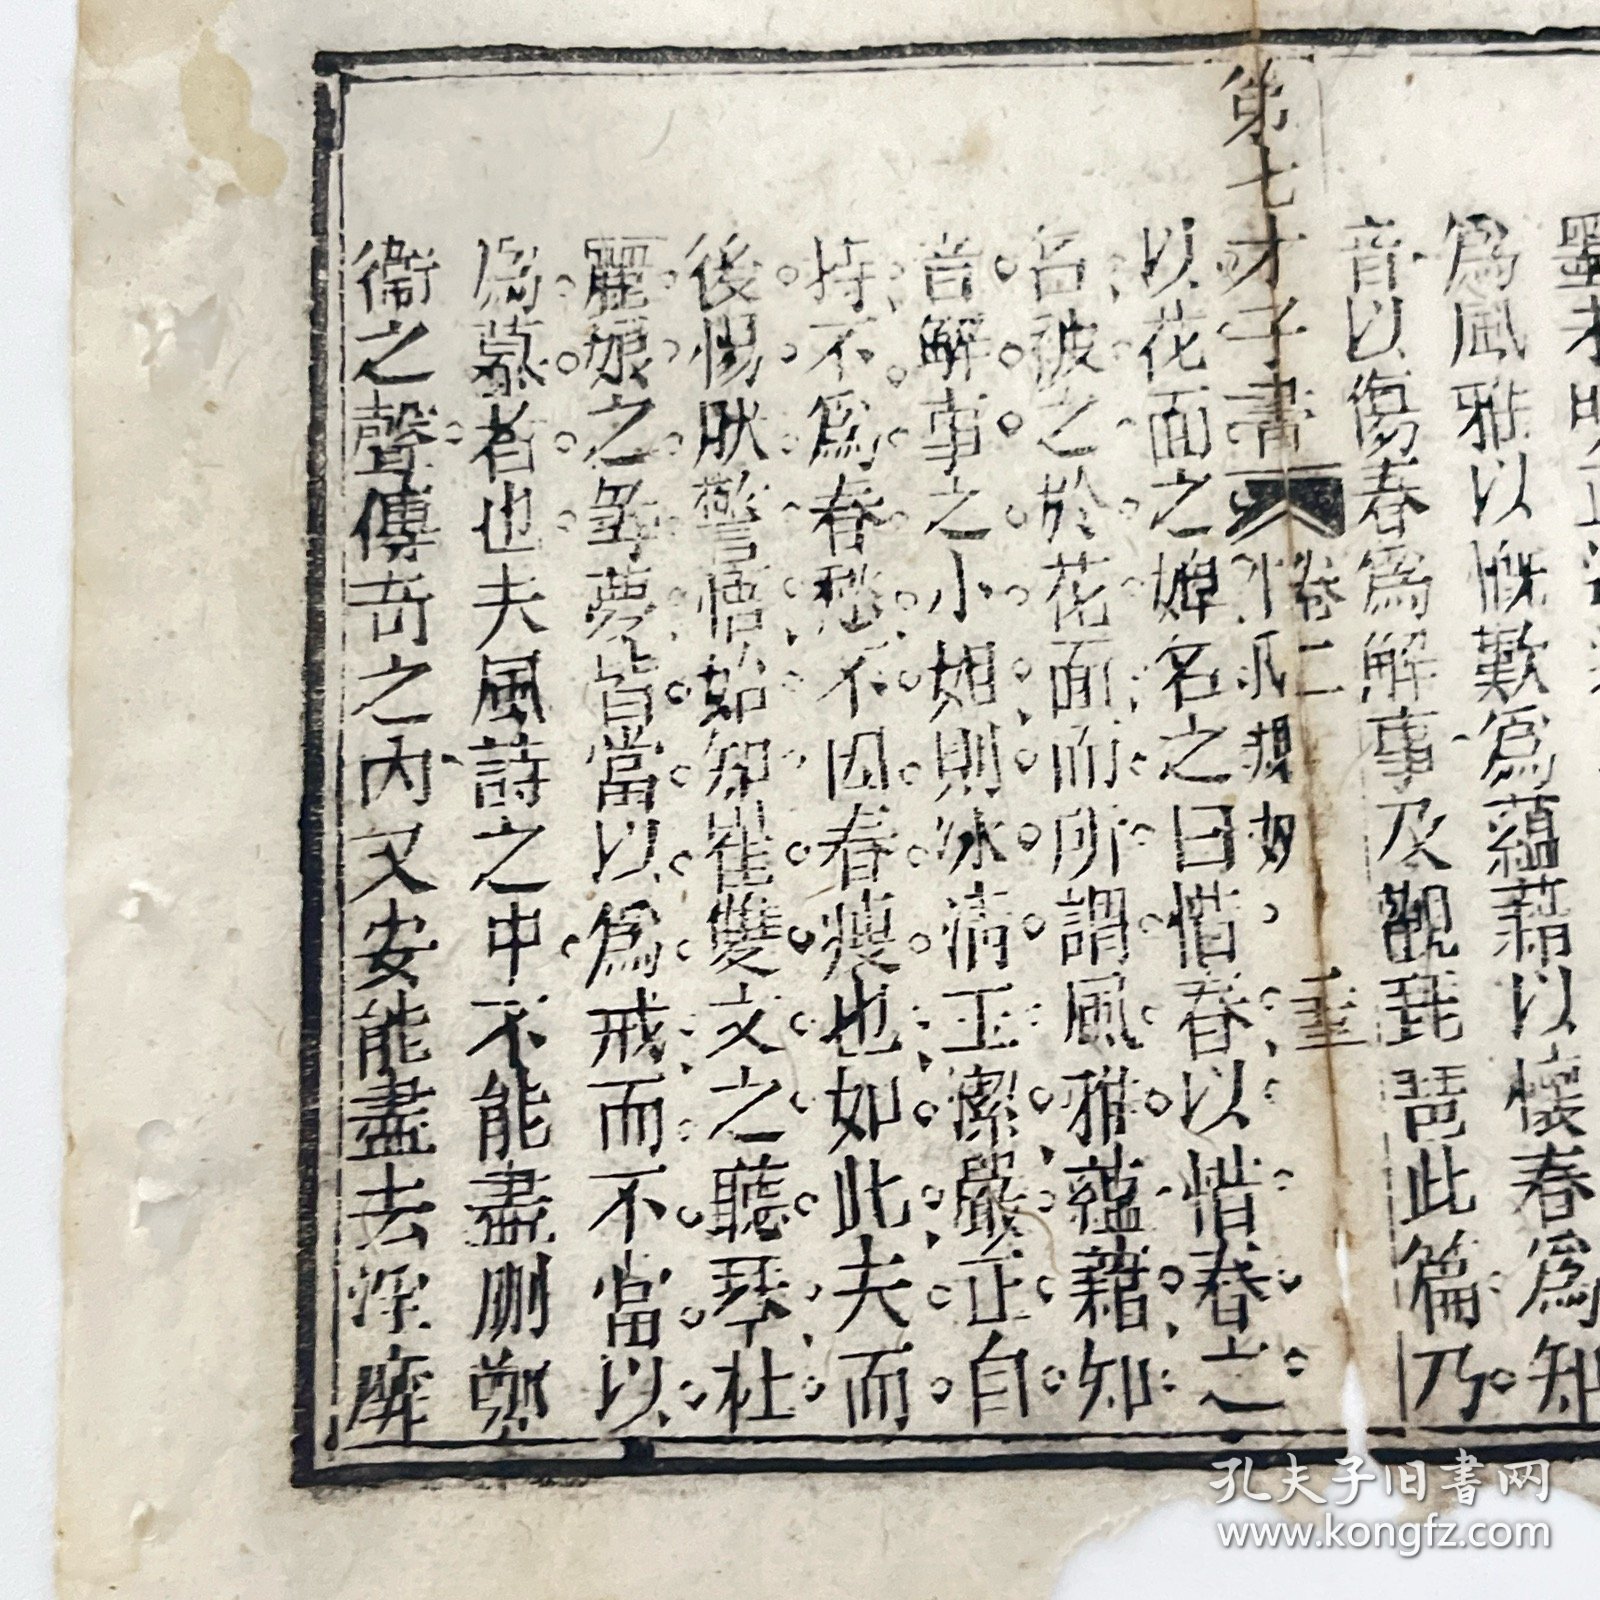 墨才明
為風雅以慨歎為蘊藉以懷春為知
音以傷春為解事及觀琵琶此篇乃
第七才子書
卷二
以花面之婢名之曰惜春以惜春之
名被之於花面而所謂風雅蘊藉知
音解事之小姐則冰清玉潔嚴正自
持不為春愁不因春瘦也如此夫而
後惕肰警悟始知崔雙文之聽琴杜
麗娘之尋夢皆當以為戒而不當以
為慕者也夫風詩之中不能盡刪鄭
衞之聲傳奇之內又安能盡去淫靡
孔夫子旧书网
www.kongfz.com